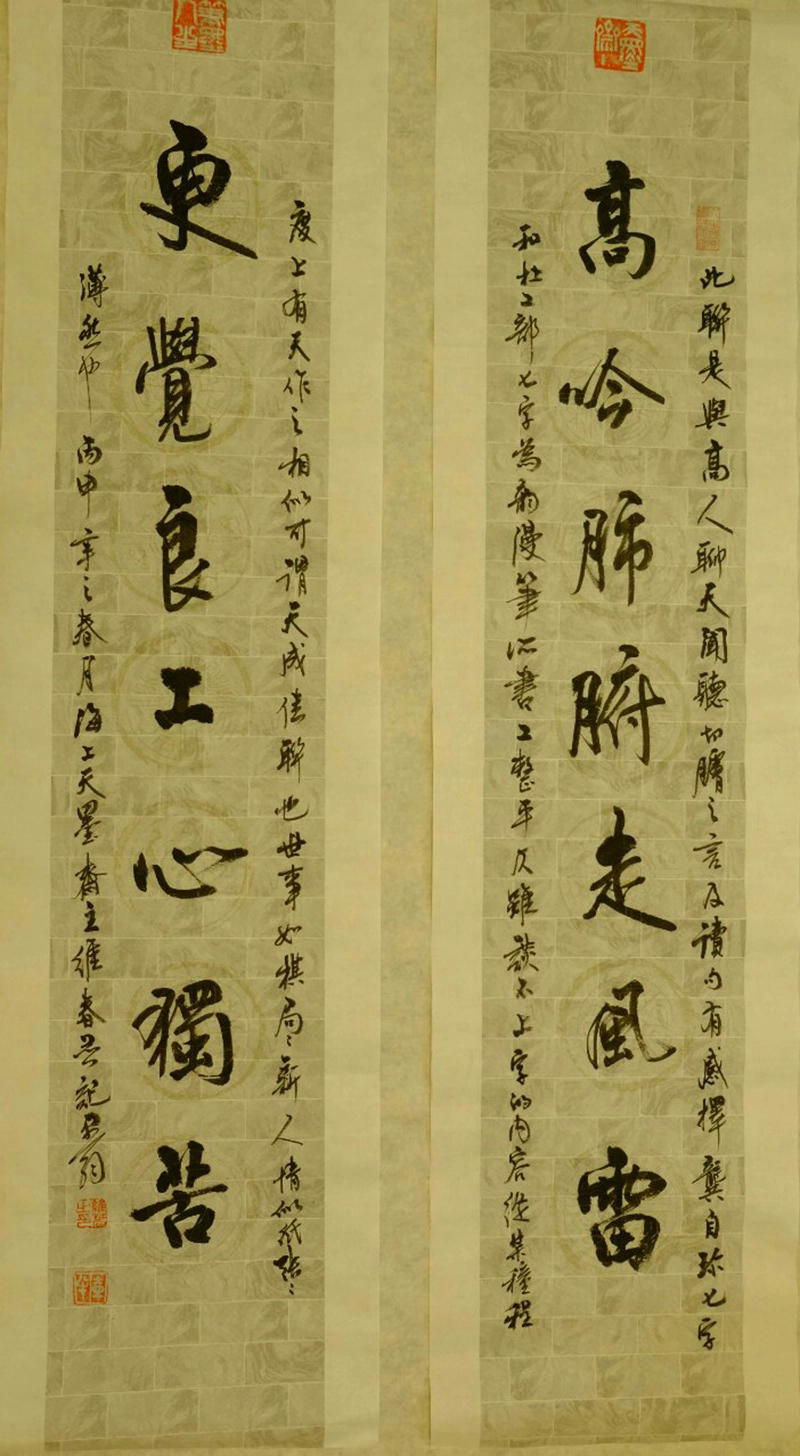 高吟肺腑走風雷
更覺良工心獨苦
此聯是與高人聊天聞聽切膚之言及讀句有感擇龔自珍七字
和杜工部七字為韵漫筆所書工整平仄雖談不上字的内容從某種程
度上有天作之相似可謂天成佳聯也世事如棋局〻新人情似紙張〻
薄然也 丙申年之春月海上天墨齋主維春并記